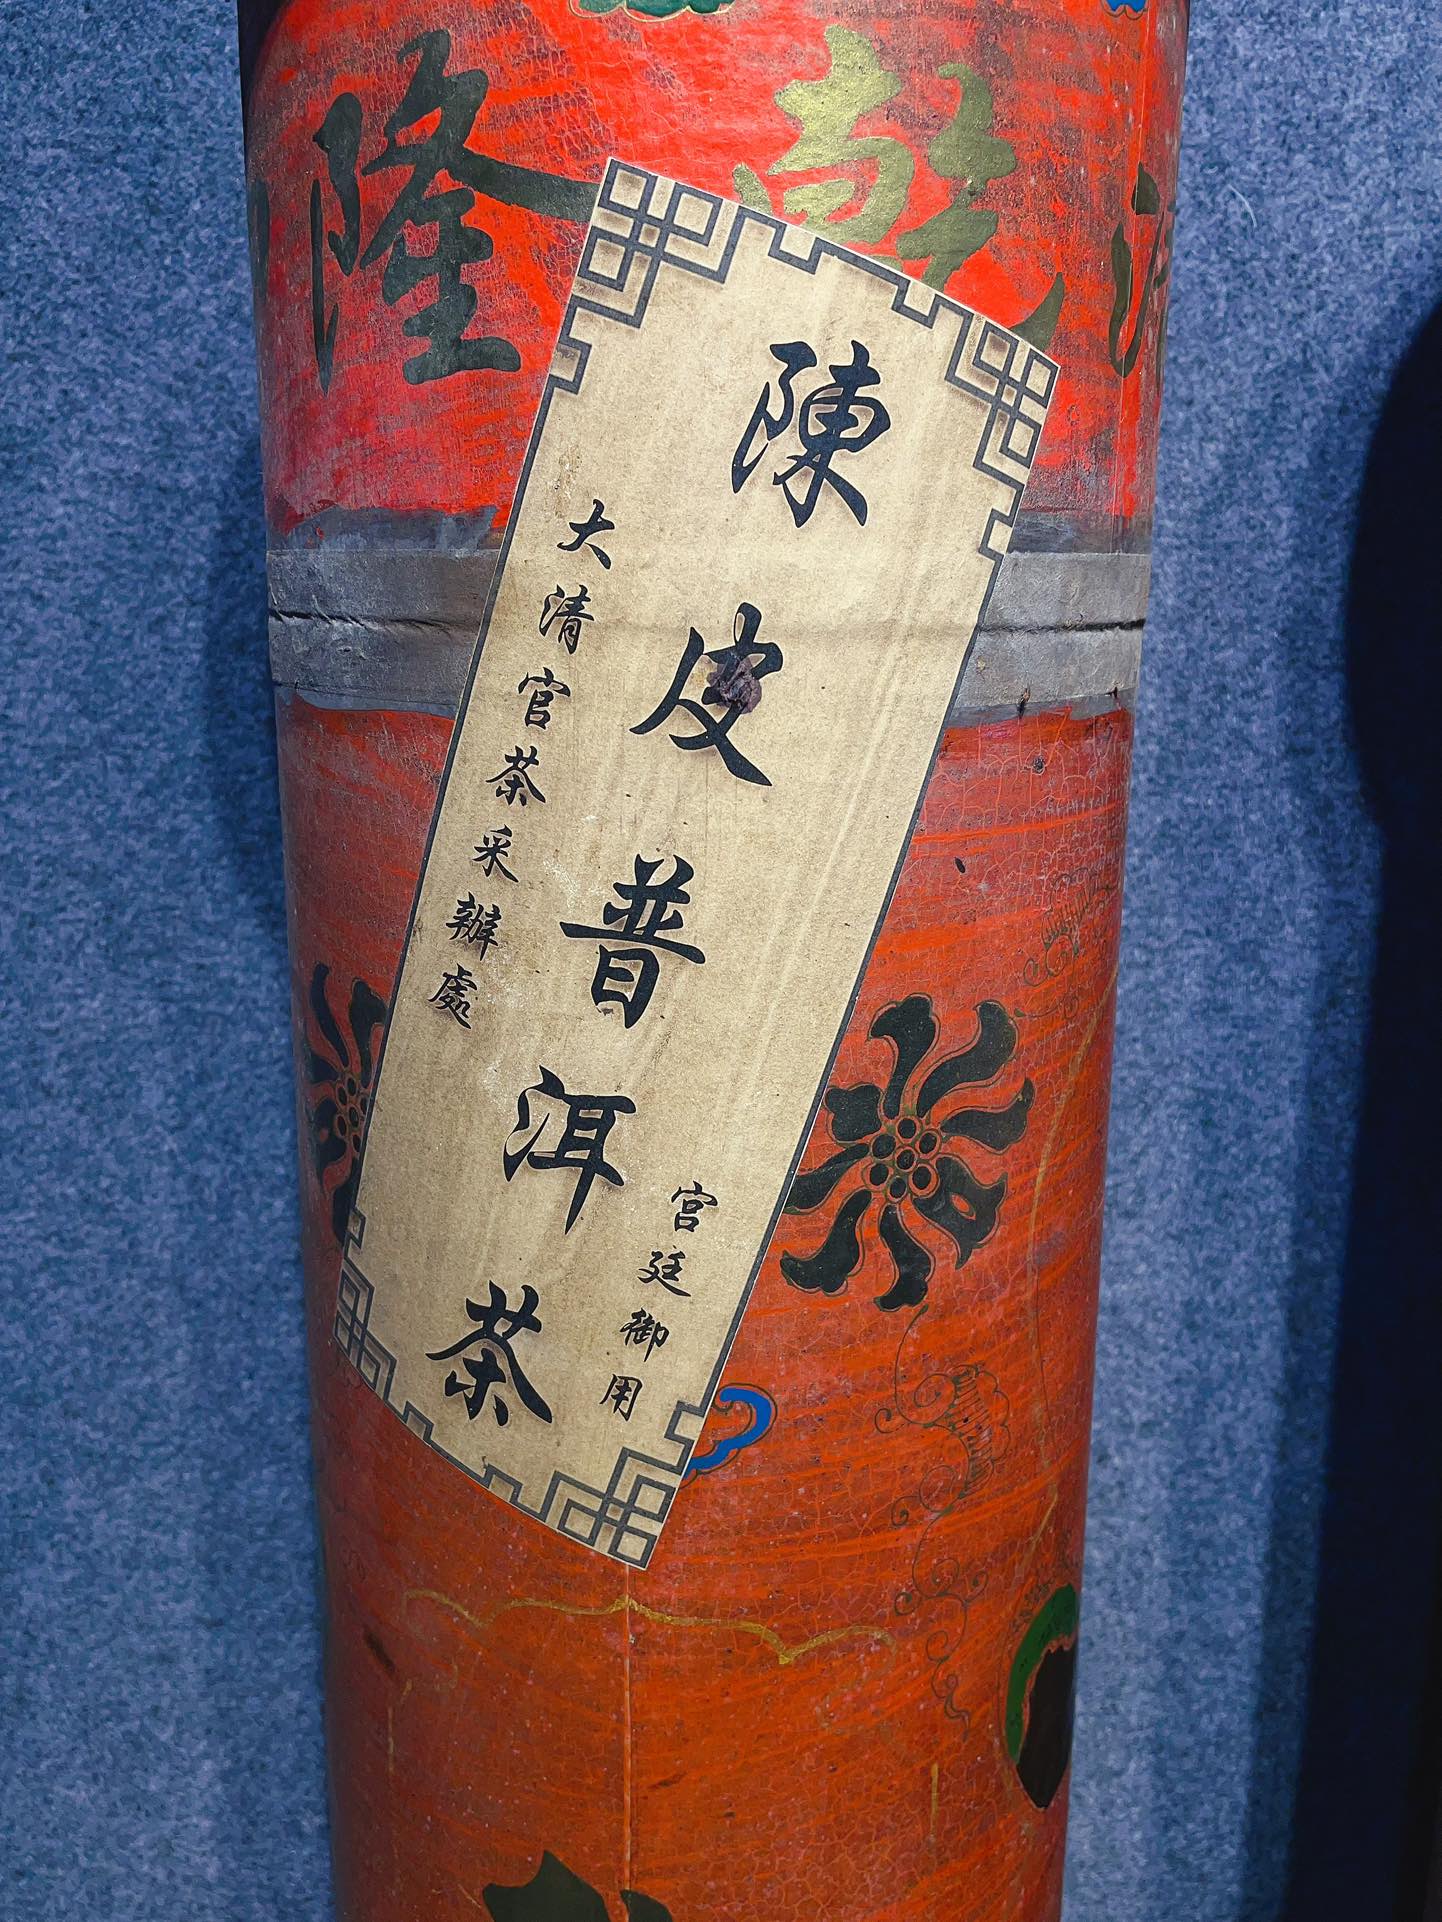 乾隆
陳皮普洱茶
宮廷御用
大清官茶采辦處